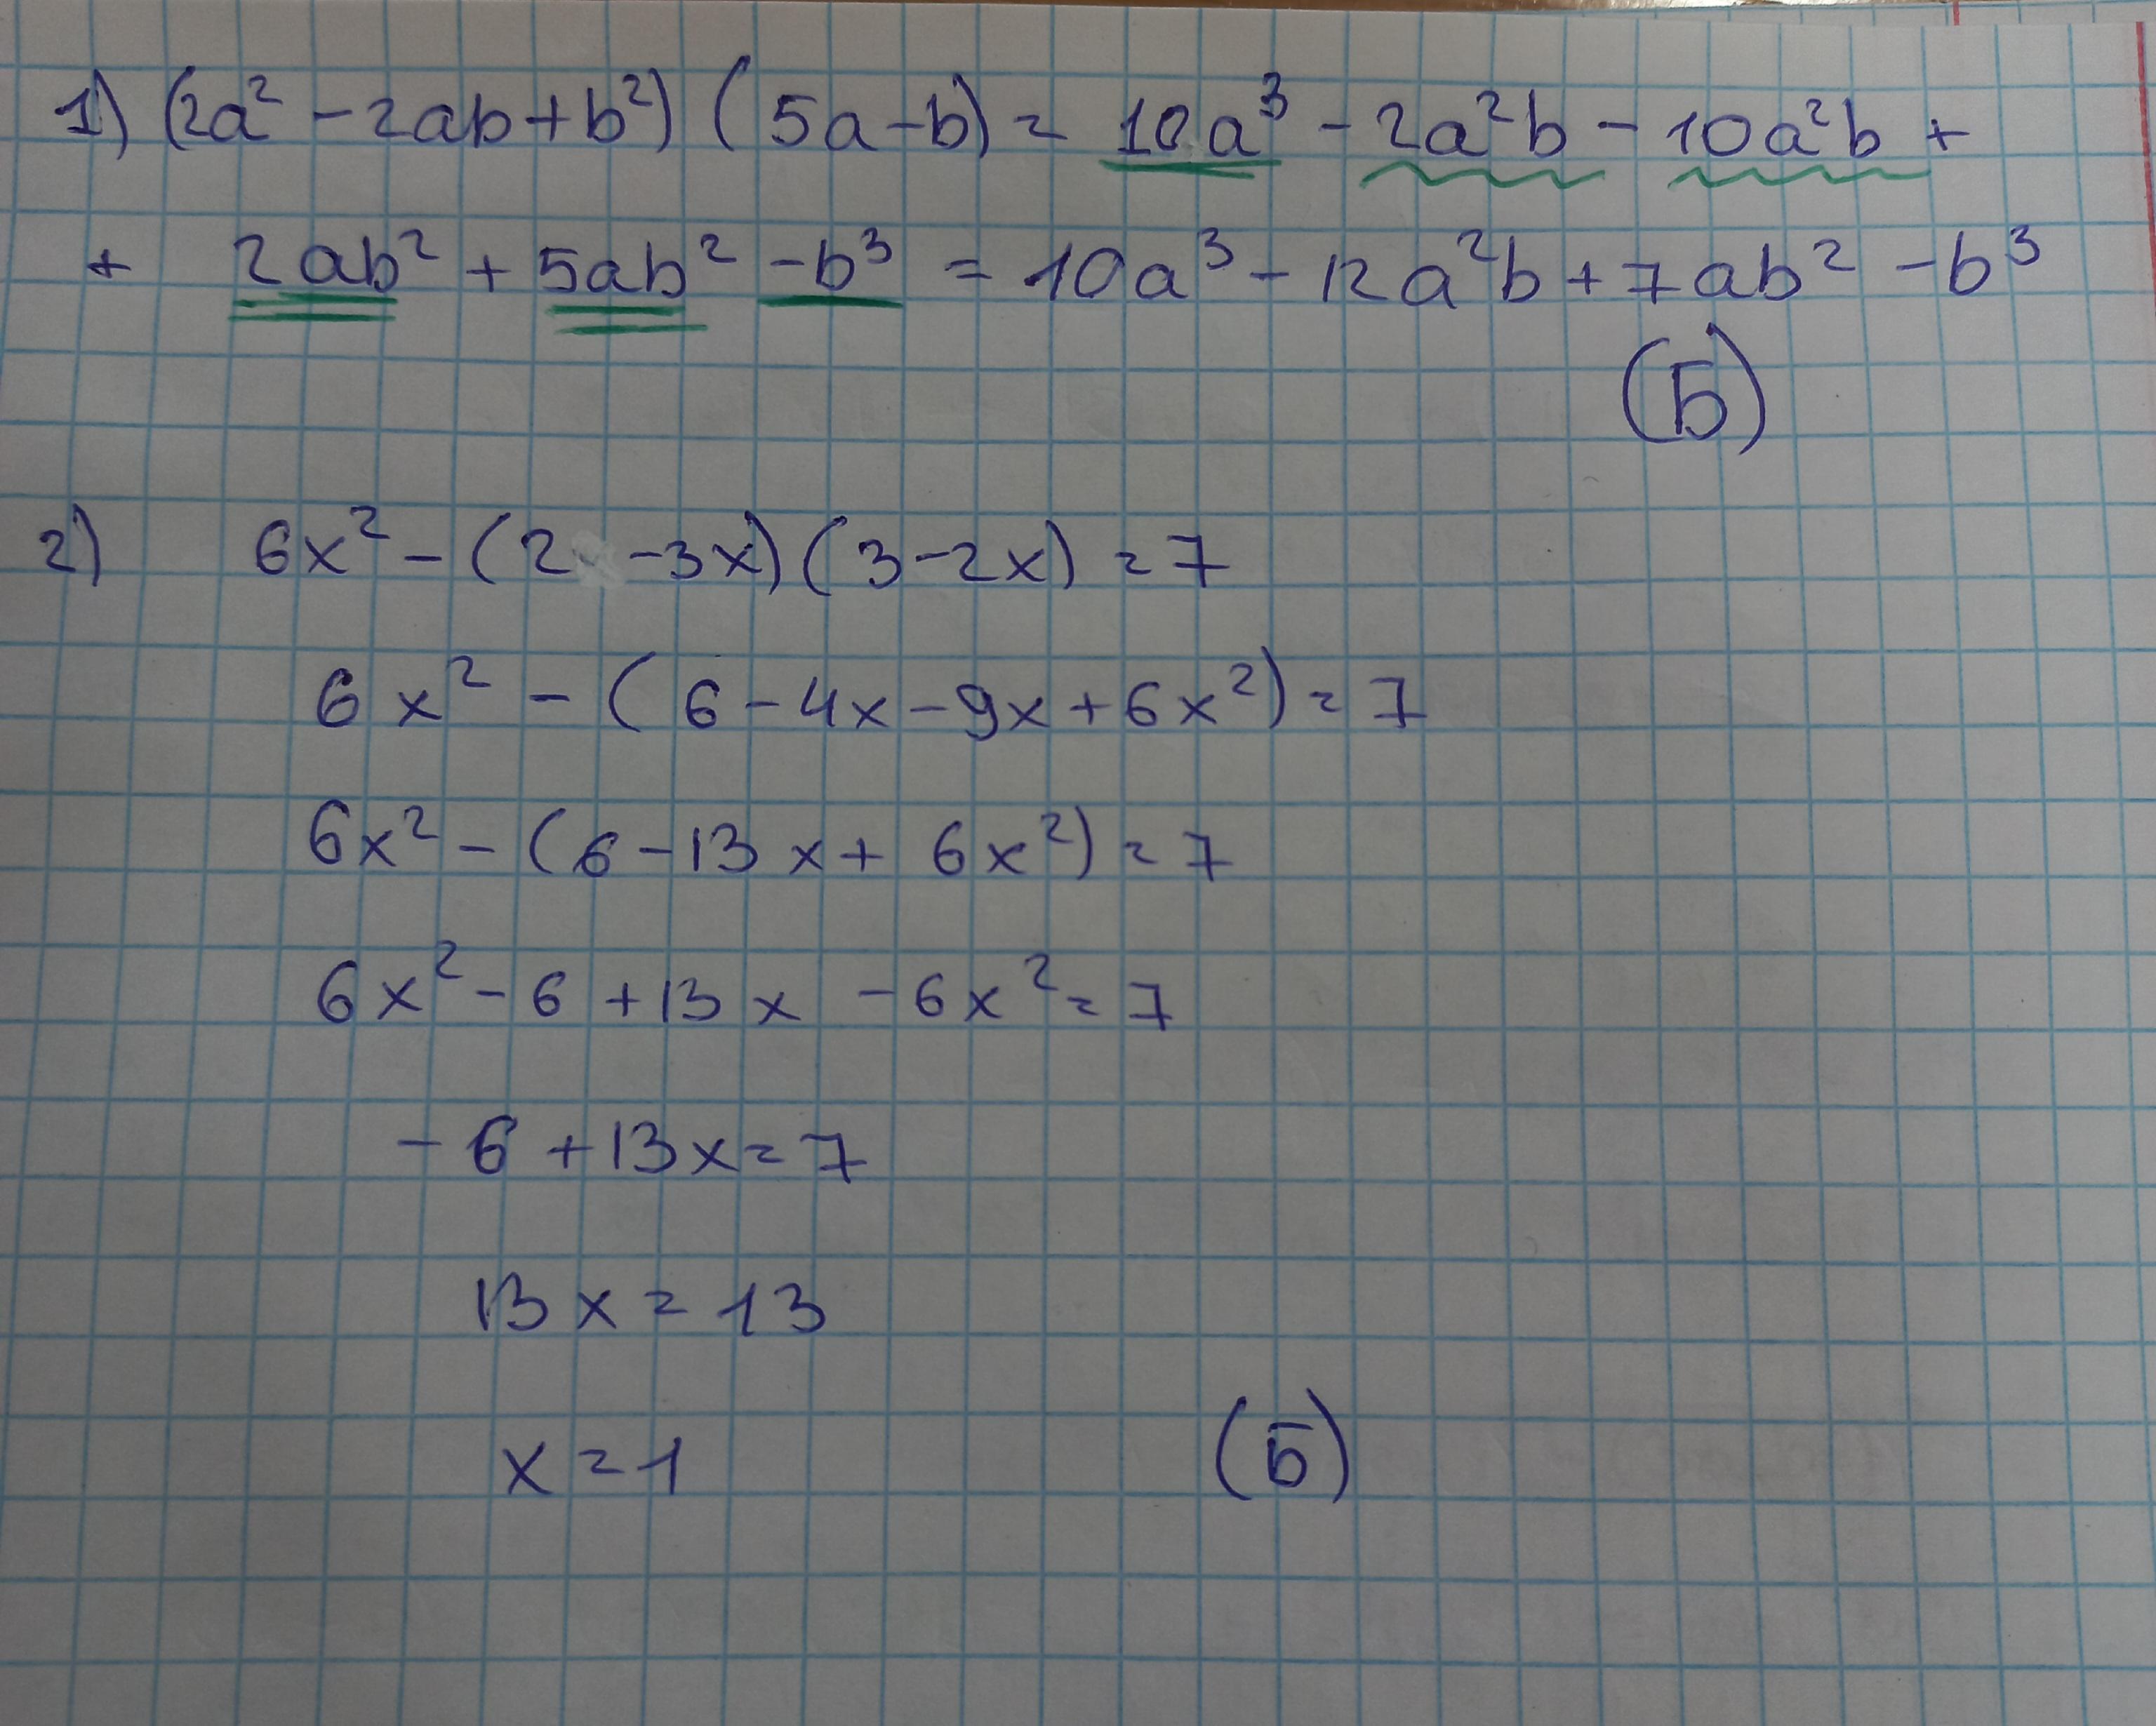 1) (2a² - 2ab + b²) (5a - b) = 10a³ - 2a²b - 10a²b +
+ 2ab² + 5ab² - b³ = 10a³ - 12a²b + 7ab² - b³
(Б)
2) 6x² - (2 - 3x) (3 - 2x) = 7
6x² - (6 - 4x - 9x + 6x²) = 7
6x² - (6 - 13x + 6x²) = 7
6x² - 6 + 13x - 6x² = 7
- 6 + 13x = 7
13x = 13
x = 1 (Б)